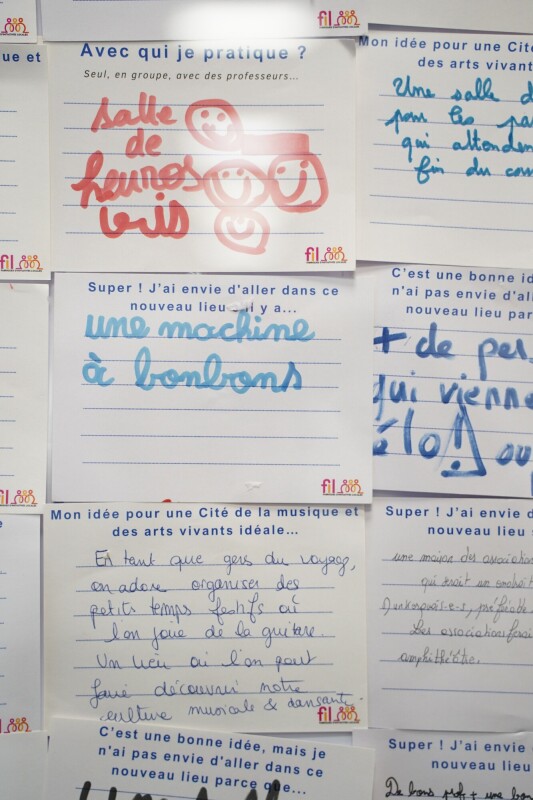 fil
fil
ue et
fil
fil
e
fil
Avec qui je pratique ?
Seul, en groupe, avec des professeurs...
salle
de
heuros
fil
Mon idée pour une Cité
des arts vivant
Une salle d
pour les pa
qui attenden
fin du cou
Super ! J'ai envie d'aller dans ce
nouveau lieu y a...
une machine
à bonbons
fil
C'est une bonne id
n'ai pas envie d'al
nouveau lieu par
+ de per
qui vienne
élo!
ou
Mon idée pour une Cité de la musique et
des arts vivants idéale...
En tant que gens du voyag,
on adore organiser des
petits temps festifs où
l'on joue de la guitare.
Un lieu où l'on peut
faire découvrir notre
culture musicale & dansante.
fil
Super ! J'ai envie d
nouveau lieu
une maison des association
qui serait un endroit
Dunkerquois-e-s, préfiable
Les associations ferai
amphithéâtre.
C'est une bonne idée, mais je
n'ai pas envie d'aller dans ce
nouveau lieu parce que...
Super ! J'ai envie
nouveau lieu
De bons profs + une bon